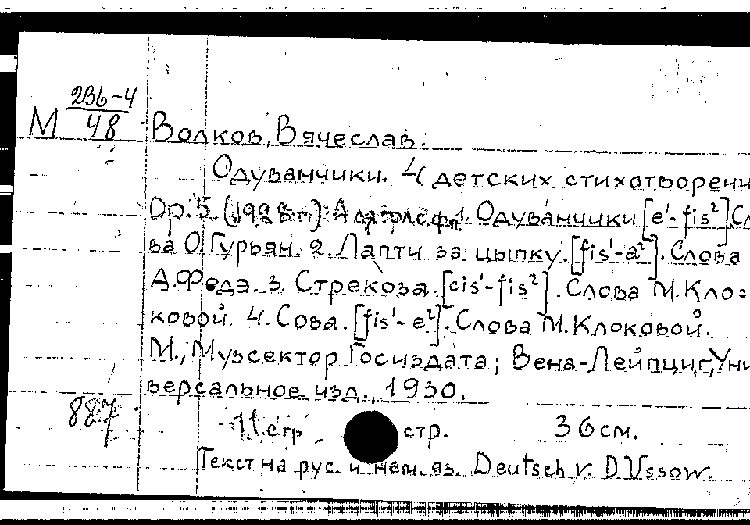 М 236-4
48
Волков, Вячеслав.
Одуванчики. 4 детских стихотворени
Op. 5 (1928 г.) 1. Одуванчики [e'-fis²] Сл
ва О. Гурьян. 2. Лапти за цыпку. [fis'-a²]. Слова
А. Федэ. 3. Стрекоза. [cis'-fis²]. Слова М. Кло=
ковой. 4. Сова. [fis'-e²]. Слова М. Клоковой.
М., Музсектор Госиздата; Вена-Лейпциг, Уни
версальное изд., 1930.
887
11 стр стр. 36 см.
Текст на рус. и нем. яз. Deutsch v. D. Ussow.